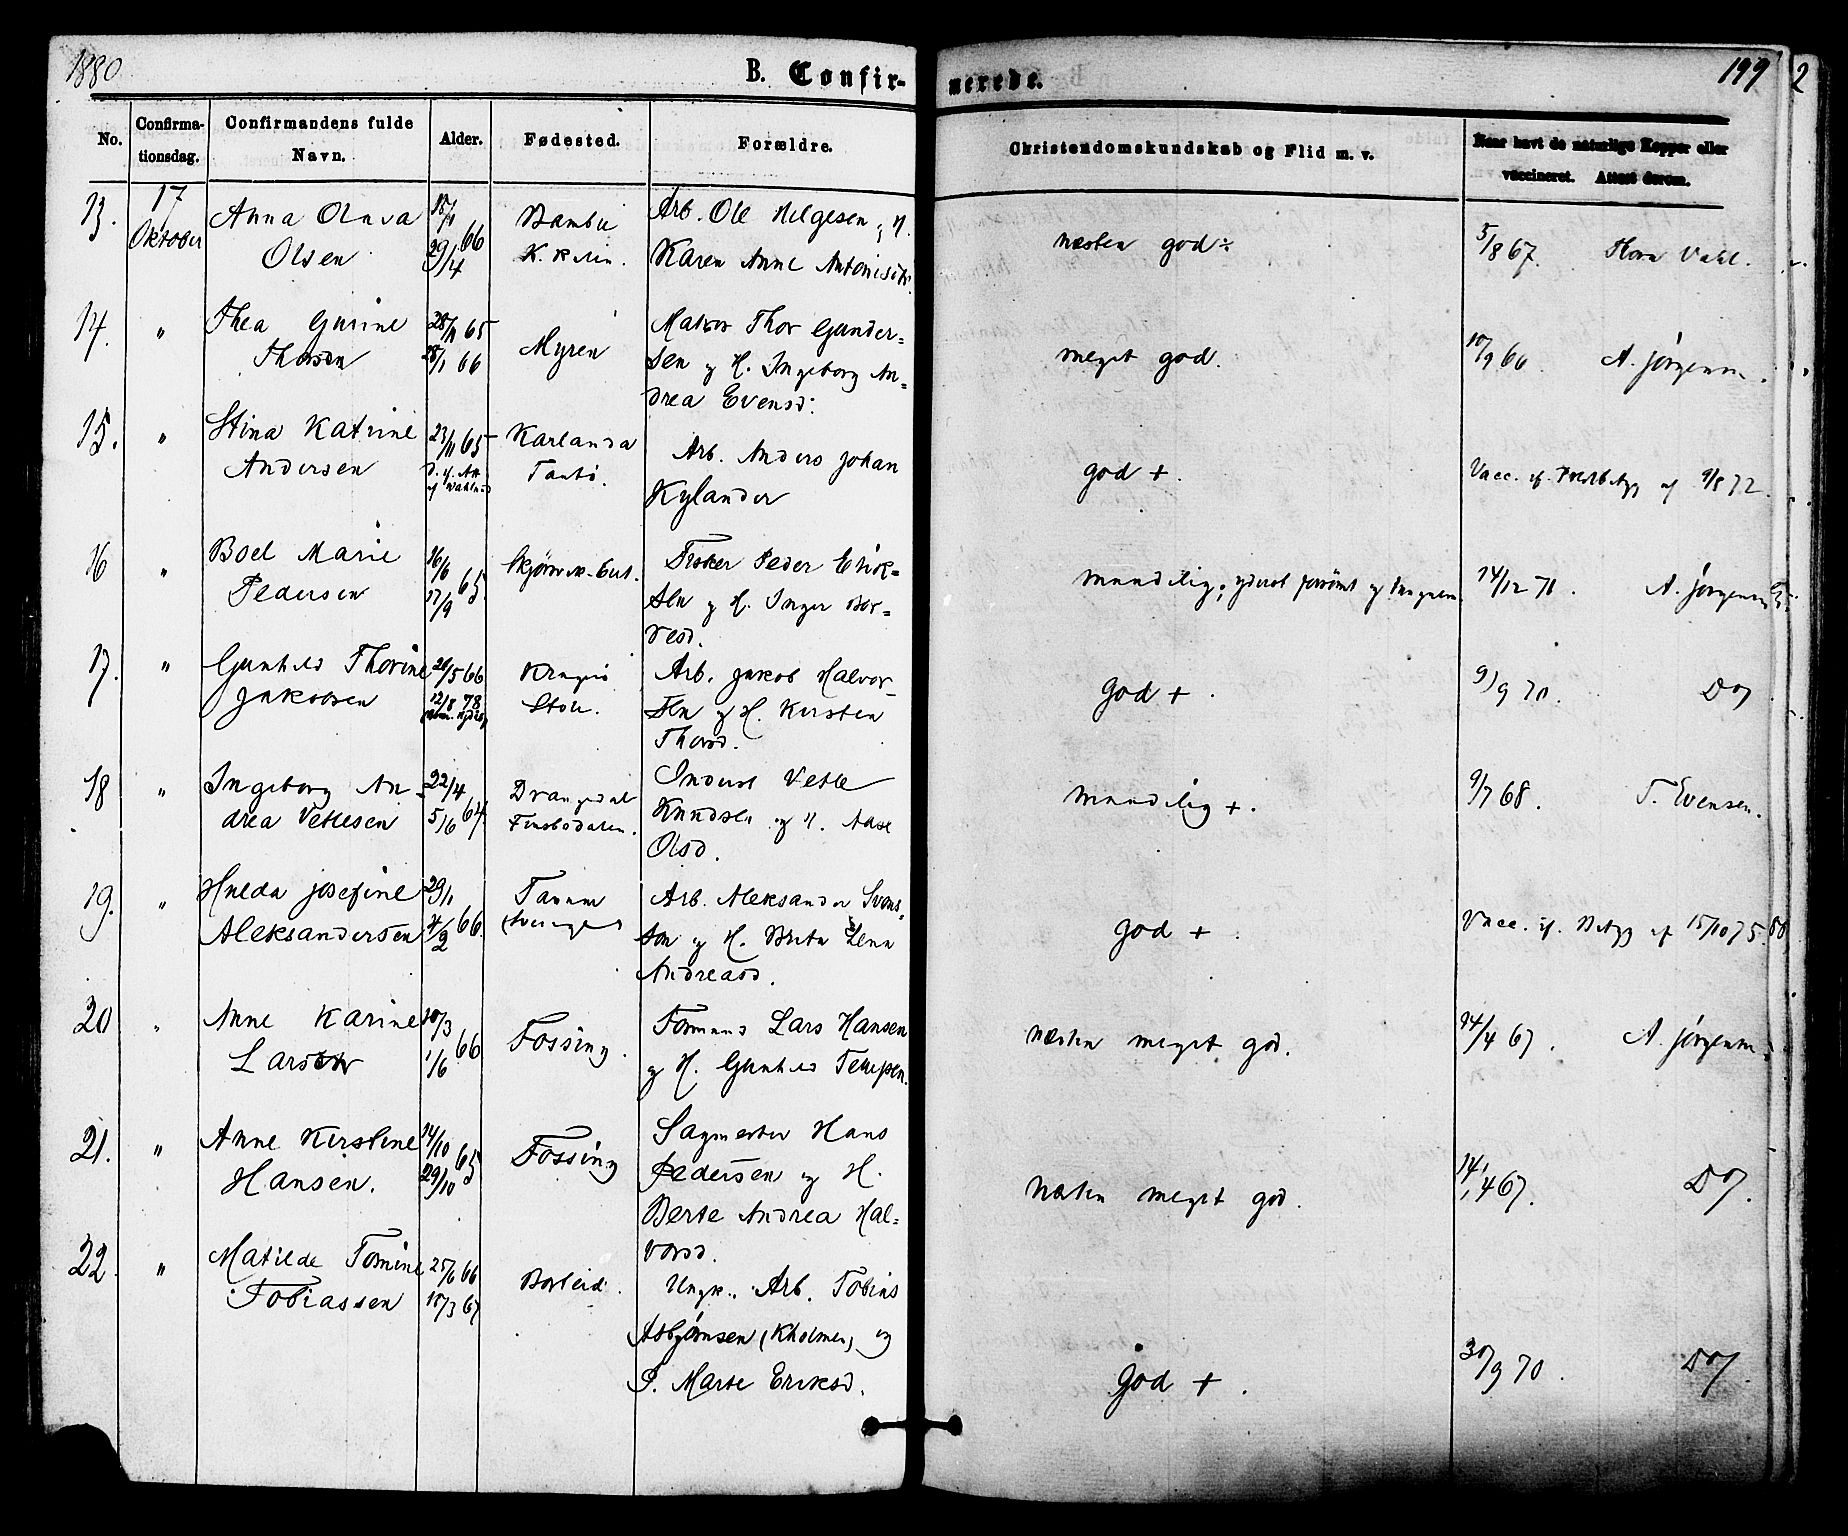 1880
B. Confir-
nerede.
199
2
No.
Confirma-
tionsdag.
Confirmandens fulde
Navn.
Alder.
Fødested.
Forældre.
Christendomskundskab og Flid m. v.
Naar havt de naturlige Kopper eller
vaccineret. Attest derom.
13.
17
Oktober
Anna Olava
Olsen
66
29/4
Bamble
Arb. Ole Helgesen og H.
Karen Anne
næsten god ÷
5/8 67.
Vahl.
14.
"
Thea Gurine
Thorsen
28/11 65
28/1 66
Myren
Matros Thor Gunder-
sen og H. Ingeborg An-
drea Evensd.
meget god.
10/9 66
A. Jørgensen.
15.
"
Stina Katrine
Andersen
23/11 65
Karlanda
Arb. Anders Johan
Kylander
god +.
Vacc. if. af 9/8 72.
16
"
Boel Marie
Pedersen
16/6 65
17/9
Fisker Peder Erik-
sen og H. Inger Bor-
resd.
maadelig; yderst og
14/12 71.
A. Jørgensen
17.
"
Gunhild Thorine
Jakobsen
26/5 66
12/8 78
Kragerø
Arb. Jakob Halvor-
sen og H. Kirsten
Thorsd.
god +.
9/9 70.
Do
18
"
Ingeborg An-
drea Vetlesen
22/4
5/6 64.
Drangedal
Inderst Vetle
Knudsen og H. Aase
Olsd.
maadelig +.
9/7 68.
T. Evensen.
19.
"
Hulda Josefine
Aleksandersen
29/1
4/2 66.
Tanum
(Sverige)
Arb. Aleksander Svens-
son og H. Brita Lena
Andreasd.
god +.
Vacc. if. af 15/10 75.
20
"
Anne Karine
Larsen
10/3
1/6 66
Fossing.
Lars Hansen
og H. Gunhild
næsten meget god.
24/4 67.
A. Jørgensen.
21.
"
Anne Kirstine
Hansen.
14/10 65
29/10
Fossing
Sagmester Hans
Pedersen og H.
Berte Andrea Hal-
vorsd.
næsten meget god.
14/4 67.
Do.
22.
"
Matilde Tomine
Tobiassen
25/6 66
10/3 67
Barleid.
Ungk. Arb. Tobias
Asbjørnsen (Kholmen) og
P. Marte Eriksd.
god +.
30/9 70.
Do.